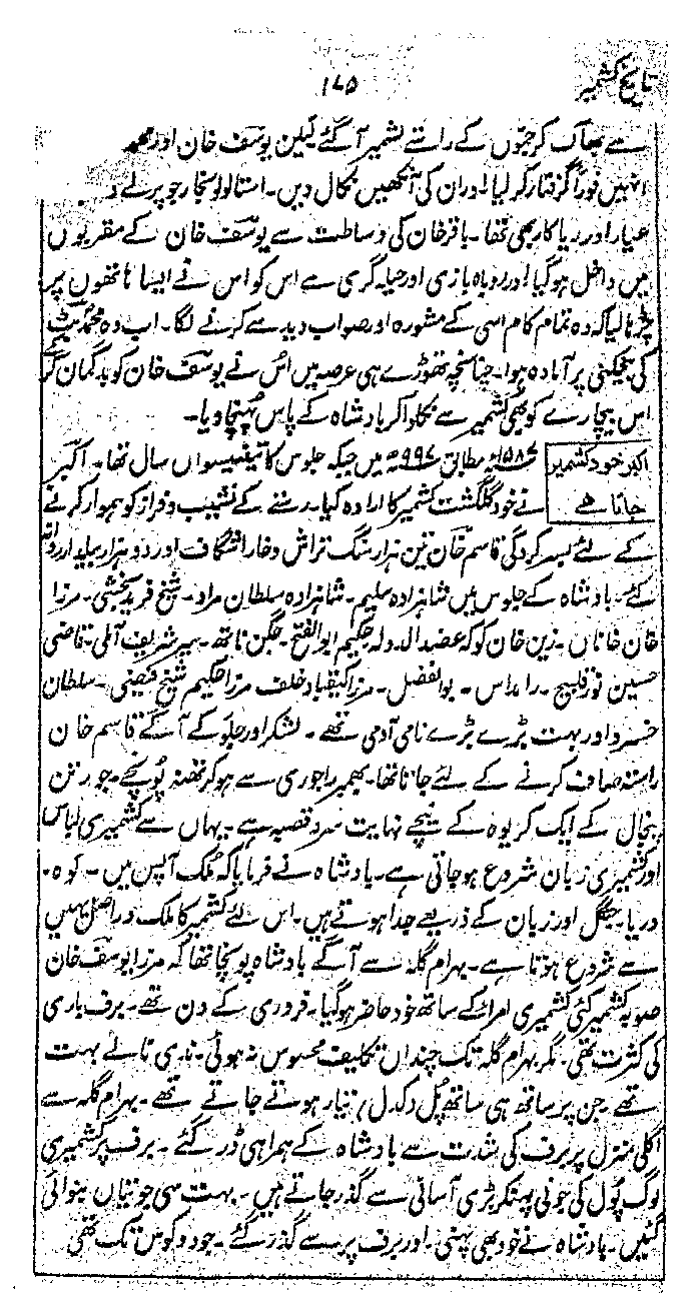 تاریخ کشمیر
۱۷۵
سے بھاگ کر جموں کے راستے کشمیر آ گئے لیکن یوسف خان اور محمد
انہیں فوراً گرفتار کر لیا اور ان کی آنکھیں نکال دیں۔ استالولو
عیار اور ریاکار بھی تھا۔ باقر خان کی وساطت سے یوسف خان کے مقربوں
میں داخل ہو گیا اور روباہ بازی اور حیلہ گری سے اس کو اس نے ایسا ہاتھوں پر
چڑھا لیا کہ وہ تمام کام اسی کے مشورہ اور صواب دید سے کرنے لگا۔ اب وہ محمد بٹ
کی بیخکنی پر آمادہ ہوا۔ چنانچہ تھوڑے ہی عرصہ میں اُس نے یوسف خان کو بدگمان کر
اس بیچارے کو بھی کشمیر سے نکلوا کر بادشاہ کے پاس پہنچا دیا۔
اکبر خود کشمیر
جاتا ہے
مطابق ۹۹۷ھ میں جبکہ جلوس کا تینتیسواں سال تھا۔ اکبر
نے خود گلگشت کشمیر کا ارادہ کیا۔ رستے کے نشیب و فراز کو ہموار کرنے
کے لئے بسرکردگی قاسم خان تین ہزار سنگ تراش و خارا شگاف اور دو ہزار بیلدار روانہ
کئے۔ بادشاہ کے جلوس میں شاہزادہ سلیم۔ شاہزادہ سلطان مراد۔ شیخ فرید بخشی۔ مرزا
خان خاناں۔ زین خان کوکہ عضد الدولہ حکیم ابوالفتح۔ جگن ناتھ۔ میر شریف آملی۔ قاضی
حسین نورقلیچ۔ رامداس۔ بوالفضل۔ مرزا کیقباد خلف مرزا حکیم شیخ فیضی۔ سلطان
خسرو اور بہت بڑے بڑے نامی آدمی تھے۔ لشکر اور جلو کے آگے قاسم خان
راستہ صاف کرنے کے لئے جاتا تھا۔ بھمبر راجوری سے ہو کر تھنہ پونچے۔ جو رتن
پنجال کے ایک کریوہ کے نیچے نہایت سرد قصبہ ہے۔ یہاں سے کشمیری لباس
اور کشمیری زبان شروع ہو جاتی ہے۔ بادشاہ نے فرمایا کہ ملک آپس میں۔ کوہ۔
دریا۔ جنگل اور زبان کے ذریعے جدا ہوتے ہیں۔ اس لئے کشمیر کا ملک دراصل یہیں
سے شروع ہوتا ہے۔ بہرام گلہ سے آگے بادشاہ پونچا تھا کہ مرزا یوسف خان
صوبہ کشمیر کئی کشمیری امراء کے ساتھ خود حاضر ہو گیا۔ فروری کے دن تھے۔ برف باری
کی کثرت تھی۔ مگر بہرام گلہ تک چنداں تکلیف محسوس نہ ہوئی۔ ندی نالے بہت
تھے۔ جن پر ساتھ ہی ساتھ پُل (کدل) تیار ہوتے جاتے تھے۔ بہرام گلہ سے
اگلی منزل پر برف کی شدت سے بادشاہ کے ہمراہی ڈر گئے۔ برف پر کشمیری
لوگ پُول کی جوتی پہنکر بڑی آسانی سے گذر جاتے ہیں۔ بہت سی جوتیاں بنوائی
گئیں۔ بادشاہ نے خود بھی پہنی۔ اور برف پر سے گذر گئے۔ جو دو کوس تک تھی